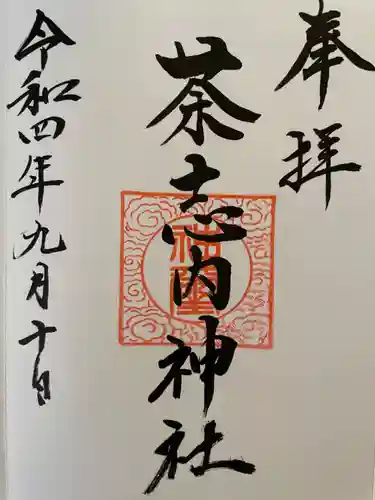 奉拝
茶志内神社
令和四年九月十日